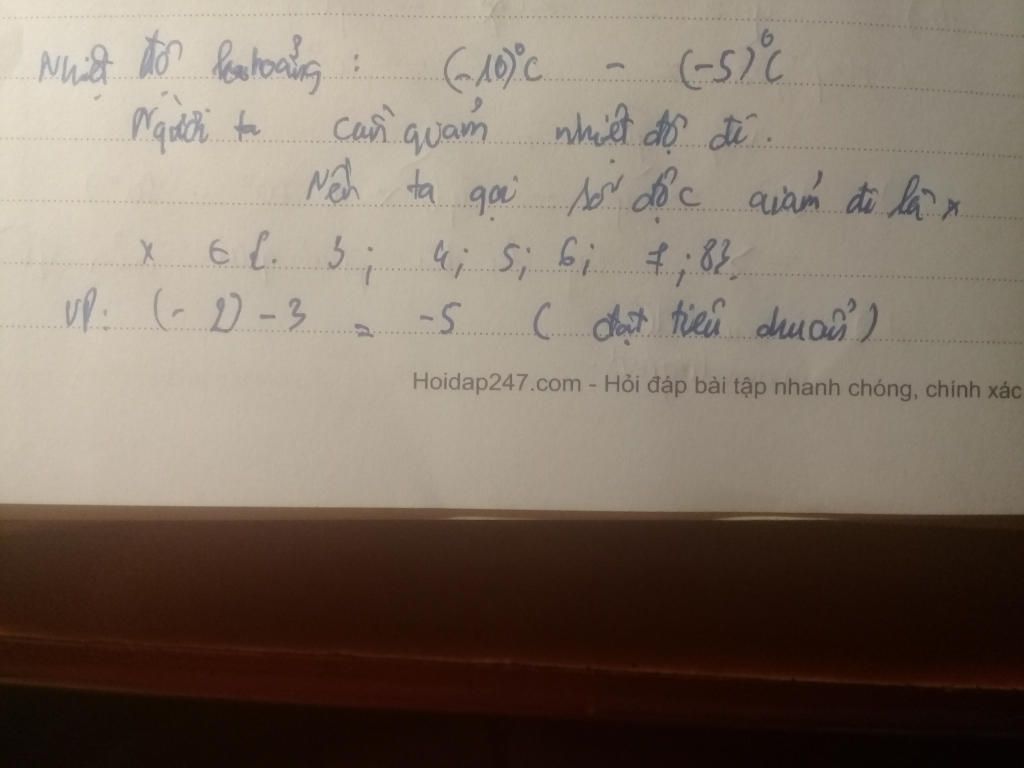 Nhiệt độ khoảng : (-10)⁰C - (-5)⁰C
Người ta cần giảm nhiệt độ đi.
Nên ta gọi số độ C giảm đi là x
x ∈ {. 3; 4; 5; 6; 7; 8}.
VD: (-2) - 3 = -5 ( đạt tiêu chuẩn )
Hoidap247.com - Hỏi đáp bài tập nhanh chóng, chính xác